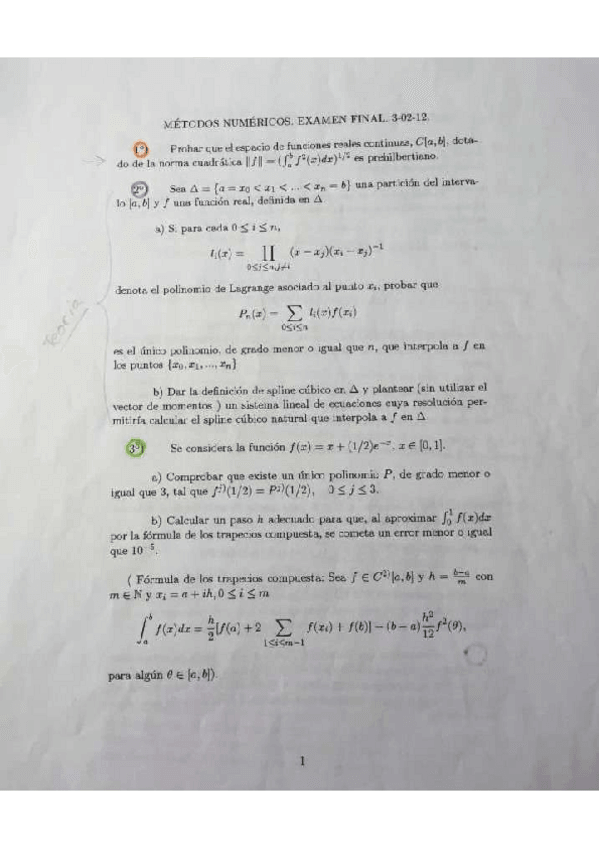 MÉTODOS NUMÉRICOS. EXAMEN FINAL. 3-02-12.
1º) Probar que el espacio de funciones reales continuas, C[a, b], dota-
do de la norma cuadrática ‖f‖ = (∫_a^b f²(x)dx)^{1/2} es prehilbertiano.
2º) Sea Δ = {a = x₀ < x₁ < ... < xₙ = b} una partición del interva-
lo [a, b] y f una función real, definida en Δ
a) Si para cada 0 ≤ i ≤ n,
lᵢ(x) = ∏_{0≤j≤n, j≠i} (x − xⱼ)(xᵢ − xⱼ)⁻¹
denota el polinomio de Lagrange asociado al punto xᵢ, probar que
Pₙ(x) = ∑_{0≤i≤n} lᵢ(x)f(xᵢ)
Teoría
es el único polinomio, de grado menor o igual que n, que interpola a f en
los puntos {x₀, x₁, ..., xₙ}
b) Dar la definición de spline cúbico en Δ y plantear (sin utilizar el
vector de momentos ) un sistema lineal de ecuaciones cuya resolución per-
mitiría calcular el spline cúbico natural que interpola a f en Δ
3º) Se considera la función f(x) = x + (1/2)e⁻ˣ, x ∈ [0, 1].
a) Comprobar que existe un único polinomio P, de grado menor o
igual que 3, tal que f^{j)}(1/2) = P^{j)}(1/2), 0 ≤ j ≤ 3.
b) Calcular un paso h adecuado para que, al aproximar ∫_0^1 f(x)dx
por la fórmula de los trapecios compuesta, se cometa un error menor o igual
que 10⁻⁵.
( Fórmula de los trapecios compuesta: Sea f ∈ C^{2)}[a, b] y h = (b−a)/m con
m ∈ ℕ y xᵢ = a + ih, 0 ≤ i ≤ m
∫_a^b f(x)dx = h/2 [f(a) + 2 ∑_{1≤i≤m−1} f(xᵢ) + f(b)] − (b − a) h²/12 f²(θ),
para algún θ ∈ [a, b]).
1